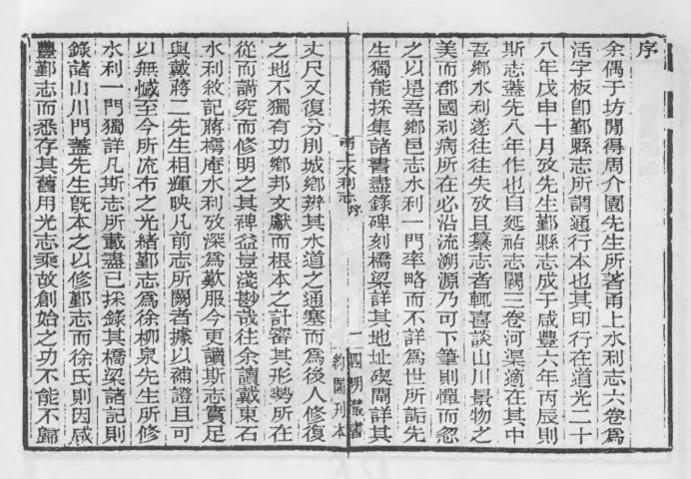 序
余偶于坊閒得周介園先生所著甬上水利志六卷爲
活字板卽鄞縣志所謂通行本也其印行在道光二十
八年戊申十月攷先生鄞縣志成于咸豐六年丙辰則
斯志蓋先八年作也自延祐志闕三卷河渠適在其中
吾鄉水利遂往往失攷且纂志者輒喜談山川景物之
美而郡國利病所在必沿流溯源乃可下筆則憚而忽
之以是吾鄉邑志水利一門率略而不詳爲世所詬先
生獨能採集諸書盡錄碑刻橋梁詳其地址碶閘詳其
甬上水利志 序 一 四明叢書 約園刊本
丈尺又復分別城鄉辨其水道之通塞而爲後人修復
之地不獨有功鄉邦文獻而根本之計審其形勢所在
從而講究而修明之其裨益豈淺尠哉往余讀戴東石
水利敘記蔣樗庵水利攷深爲歎服今更讀斯志實足
與戴蔣二先生相輝映凡前志所闕者據以補證且可
以無憾至今所流布之光緒鄞志爲徐柳泉先生所修
水利一門獨詳凡斯志所載盡已採錄其橋梁諸記則
錄諸山川門蓋先生旣本之以修鄞志而徐氏則因咸
豐鄞志而悉存其舊用光志乘故創始之功不能不歸